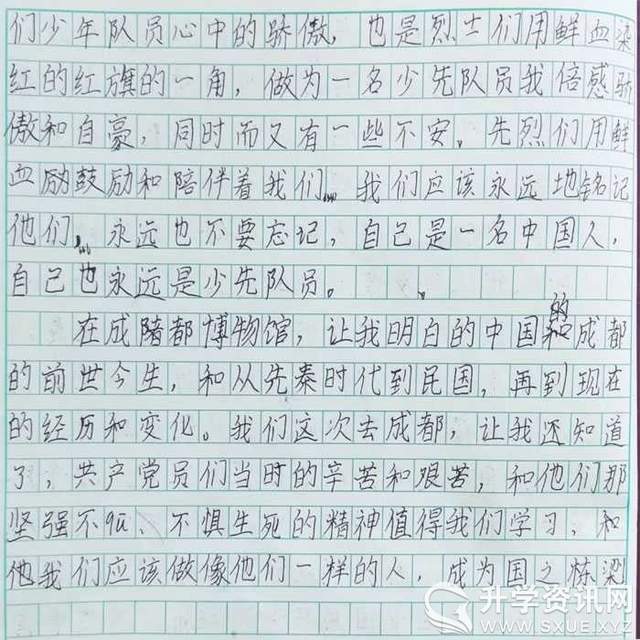 们少年队员心中的骄傲，也是烈士们用鲜血染
红的红旗的一角，做为一名少先队员我倍感骄
傲和自豪，同时而又有一些不安。先烈们用鲜
血励鼓励和陪伴着我们，我们应该永远地铭记
他们，永远也不要忘记，自己是一名中国人，
自己也永远是少先队员。
在成都博物馆，让我明白的中国的和成都
的前世今生，和从先秦时代到民国，再到现在
的经历和变化。我们这次去成都，让我还知道
了，共产党员们当时的辛苦和艰苦，和他们那
坚强不屈、不惧生死的精神值得我们学习，和
他我们应该做像他们一样的人，成为国之栋梁
升学资讯网
WWW.SXUE.XYZ